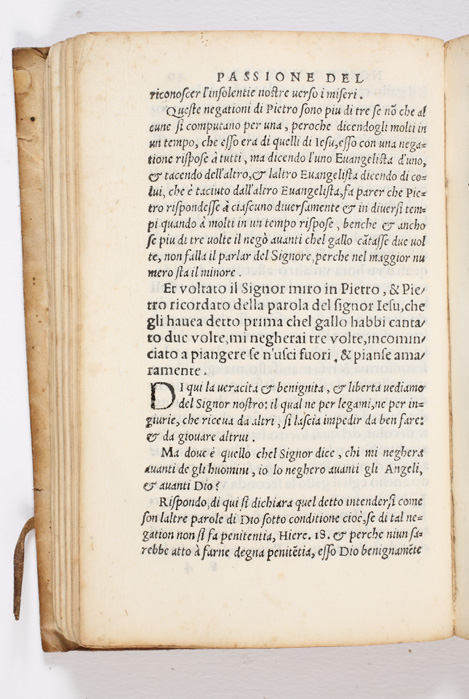 PASSIONE DEL
riconoscer l'insolentie nostre uerso i miseri.
Queste negationi di Pietro sono piu di tre se nõ che al
cune si computano per una, peroche dicendogli molti in
un tempo, che esso era di quelli di Iesu, esso con una nega-
tione rispose à tutti, ma dicendo l'uno Euangelista d'uno,
& tacendo dell'altro, & laltro Euangelista dicendo di co-
lui, che è taciuto dall'altro Euangelista, fa parer che Pie-
tro rispondesse à ciascuno diuersamente & in diuersi tem-
pi quando à molti in un tempo rispose, benche & ancho
se piu di tre uolte il negò auanti chel gallo cãtasse due uol
te, non falla il parlar del Signore, perche nel maggior nu
mero sta il minore.
Et voltato il Signor miro in Pietro, & Pie-
tro ricordato della parola del signor Iesu, che
gli hauea detto prima chel gallo habbi canta-
to due volte, mi negherai tre volte, incomin-
ciato a piangere se n'usci fuori, & pianse ama-
ramente.
DI qui la ueracita & benignita, & liberta uediamo
del Signor nostro: il qual ne per legami, ne per in-
giurie, che riceua da altri, si lascia impedir da ben fare:
& da giouare altrui.
Ma doue è quello chel Signor dice, chi mi neghera
auanti de gli huomini, io lo neghero auanti gli Angeli,
& auanti Dio?
Rispondo, di qui si dichiara quel detto intendersi come
son laltre parole di Dio sotto conditione cioè, se di tal ne-
gation non si fa penitentia, Hiere. 18. & perche niun sa-
rebbe atto à farne degna penitẽtia, esso Dio benignamẽte